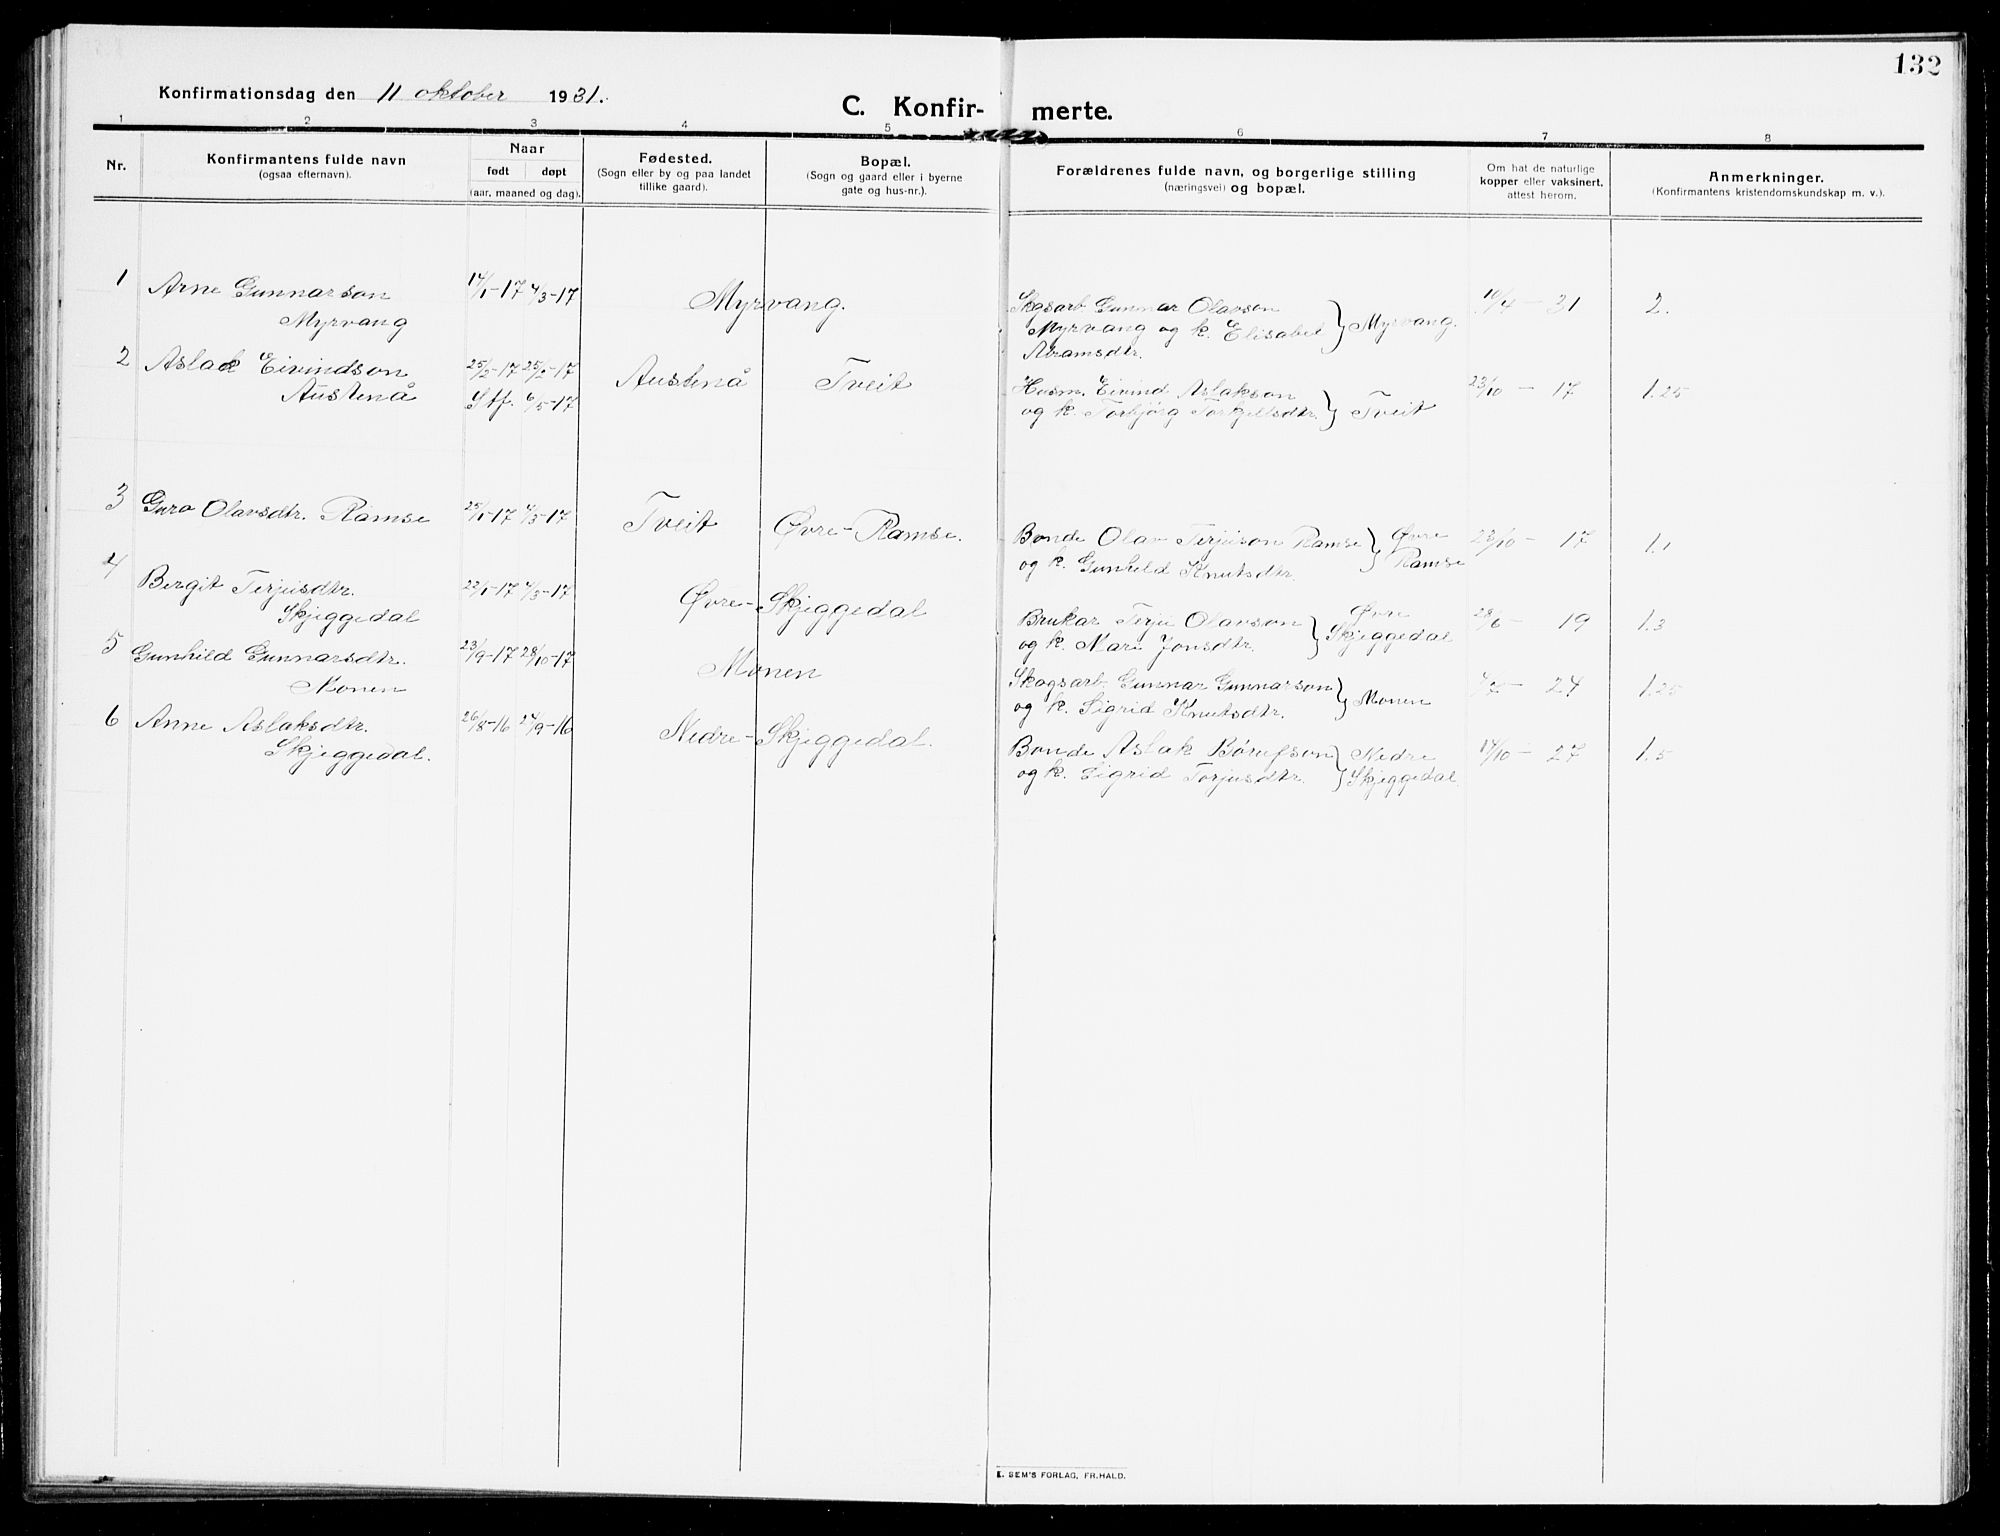 132
Konfirmationsdag den 11 oktober 1931.
C. Konfir- merte.
1 2 3 4 5 6 7 8
Nr.
Konfirmantens fulde navn
(ogsaa efternavn).
Naar
født døpt
(aar, maaned og dag).
Fødested.
(Sogn eller by og paa landet
tillike gaard).
Bopæl.
(Sogn og gaard eller i byerne
gate og hus-nr.).
Forældrenes fulde navn, og borgerlige stilling
(næringsvei) og bopæl.
Om hat de naturlige
kopper eller vaksinert,
attest herom.
Anmerkninger.
(Konfirmantens kristendomskundskap m. v.).
1 Arne Gunnarson 14/1-17 4/3-17 Myrvang. Skgsarb. Gunnar Olavson 10/4 - 31 2.
Myrvang Myrvang og k. Elisabet } Myrvang.
Abramsdtr.
2 Aslak Eivindson 25/2-17 25/2-17 Austenå Tveit Husm. Eivind Aslakson 23/10 - 17 1.25
Austenå Stf. 6/5-17 og k. Torbjörg Torkjellsdtr. } Tveit
3 Guro Olavsdtr. Ramse 25/1-17 4/3-17 Tveit Øvre-Ramse. Bonde Olav Terjuson Ramse } Øvre 23/10 - 17 1.1
og k. Gunhild Knutsdtr. Ramse
4 Bergit Terjusdtr. 22/1-17 4/3-17 Øvre-Skjeggedal Brukar Terju Olavson } Øvre 28/6 - 19 1.3
Skjeggedal og k. Mari Jonsdtr. Skjeggedal
5 Gunhild Gunnarsdtr. 23/9-17 28/10-17 Monen Skogsarb. Gunnar Gunnarson } Monen - 24 1.25
Monen og k. Sigrid Knutsdtr.
6 Anne Aslaksdtr. 26/8-16 24/9-16 Nedre-Skjeggedal. Bonde Aslak Börufson } Nedre 14/10 - 27 1.5
Skjeggedal. og k. Sigrid Torjusdtr. Skjeggedal.
E. SEM'S FORLAG, FR.HALD.